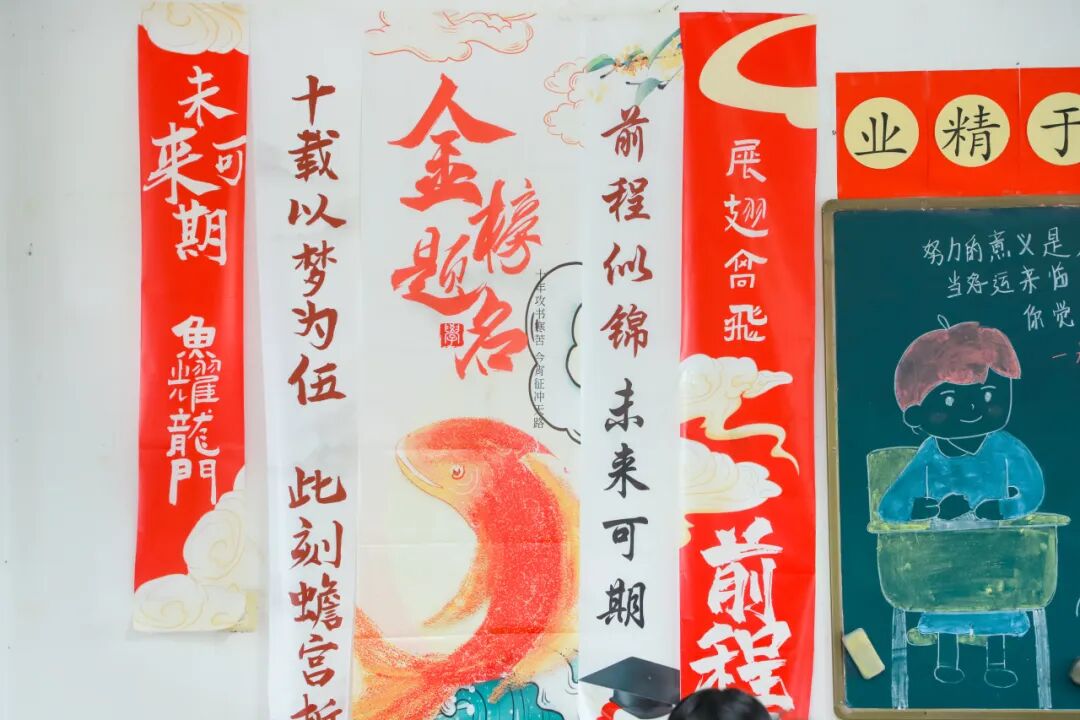 未来可期
魚耀龍門
十载以梦为伍
此刻蟾宫
金榜题名
學
十年攻书寒苦 今宵征冲天路
前程似锦
未来可期
展翅高飛
前程
业精于
努力的意义是
当好运来临
你觉